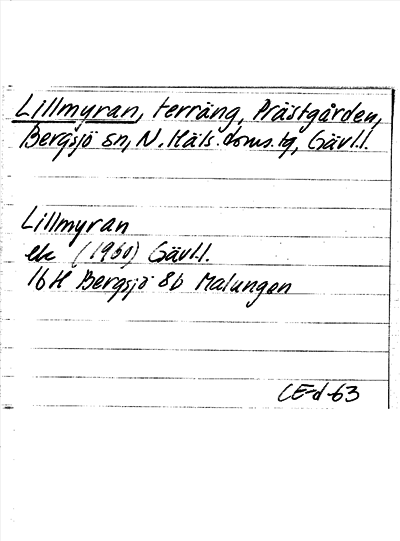 Lillmyran, terräng, Prästgården,
Bergsjö sn, N. Häls. doms.tg, Gävl.l.
Lillmyran
ek (1960) Gävl.l.
16H Bergsjö 8b Malungen
CE-d-63